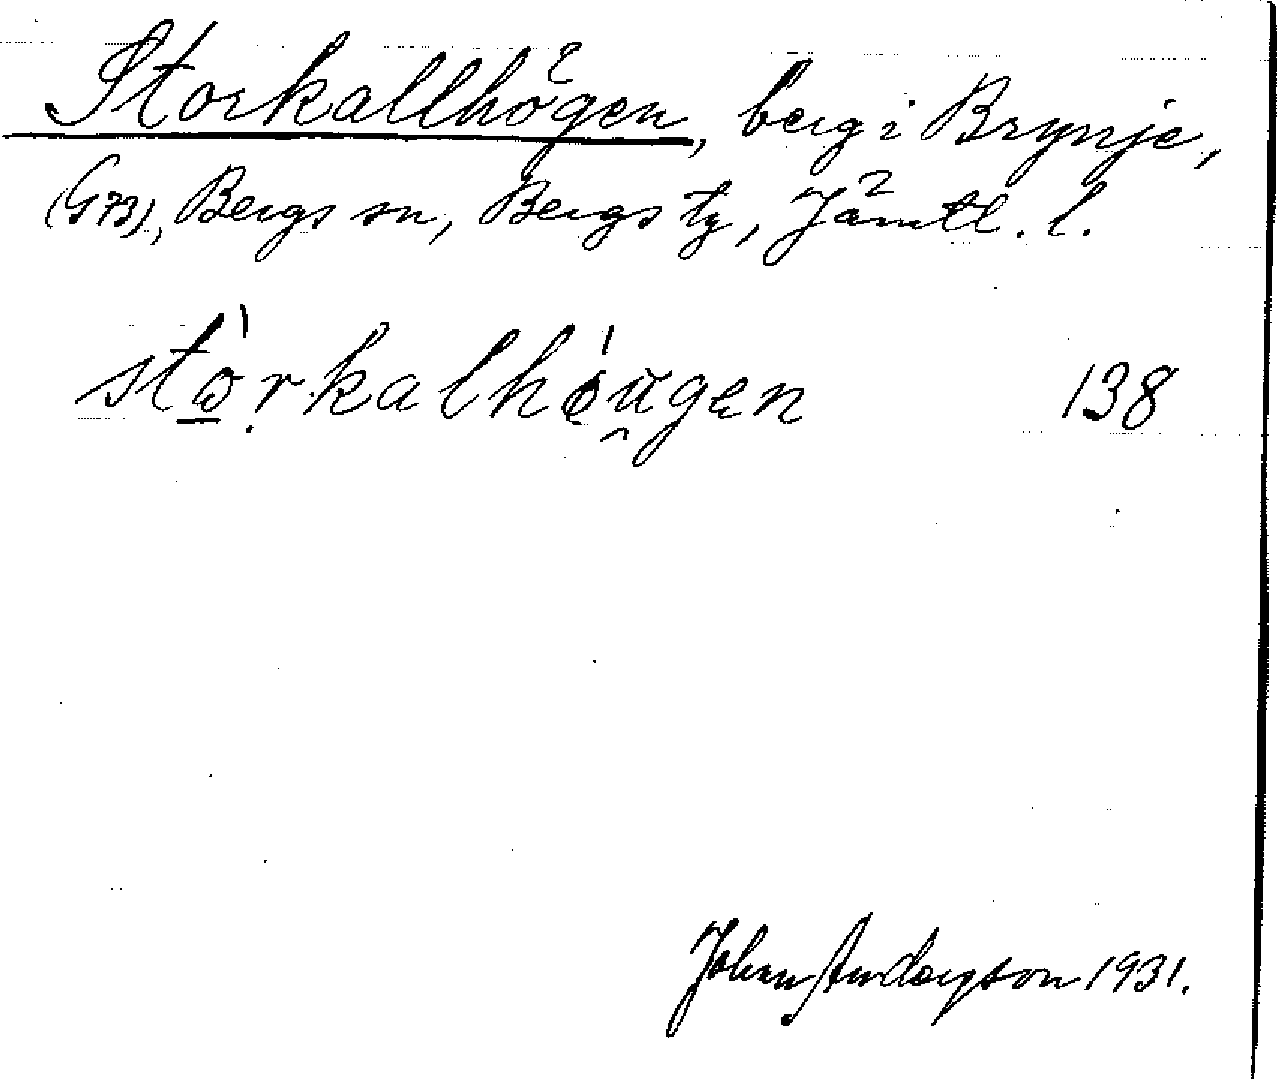 Storkallhögen, berg i Brynje,
(G73), Bergs sn, Bergs tg, Jämtl. l.
stò̠ṛkalhóu̯gen 138
Johan Anderson 1931.